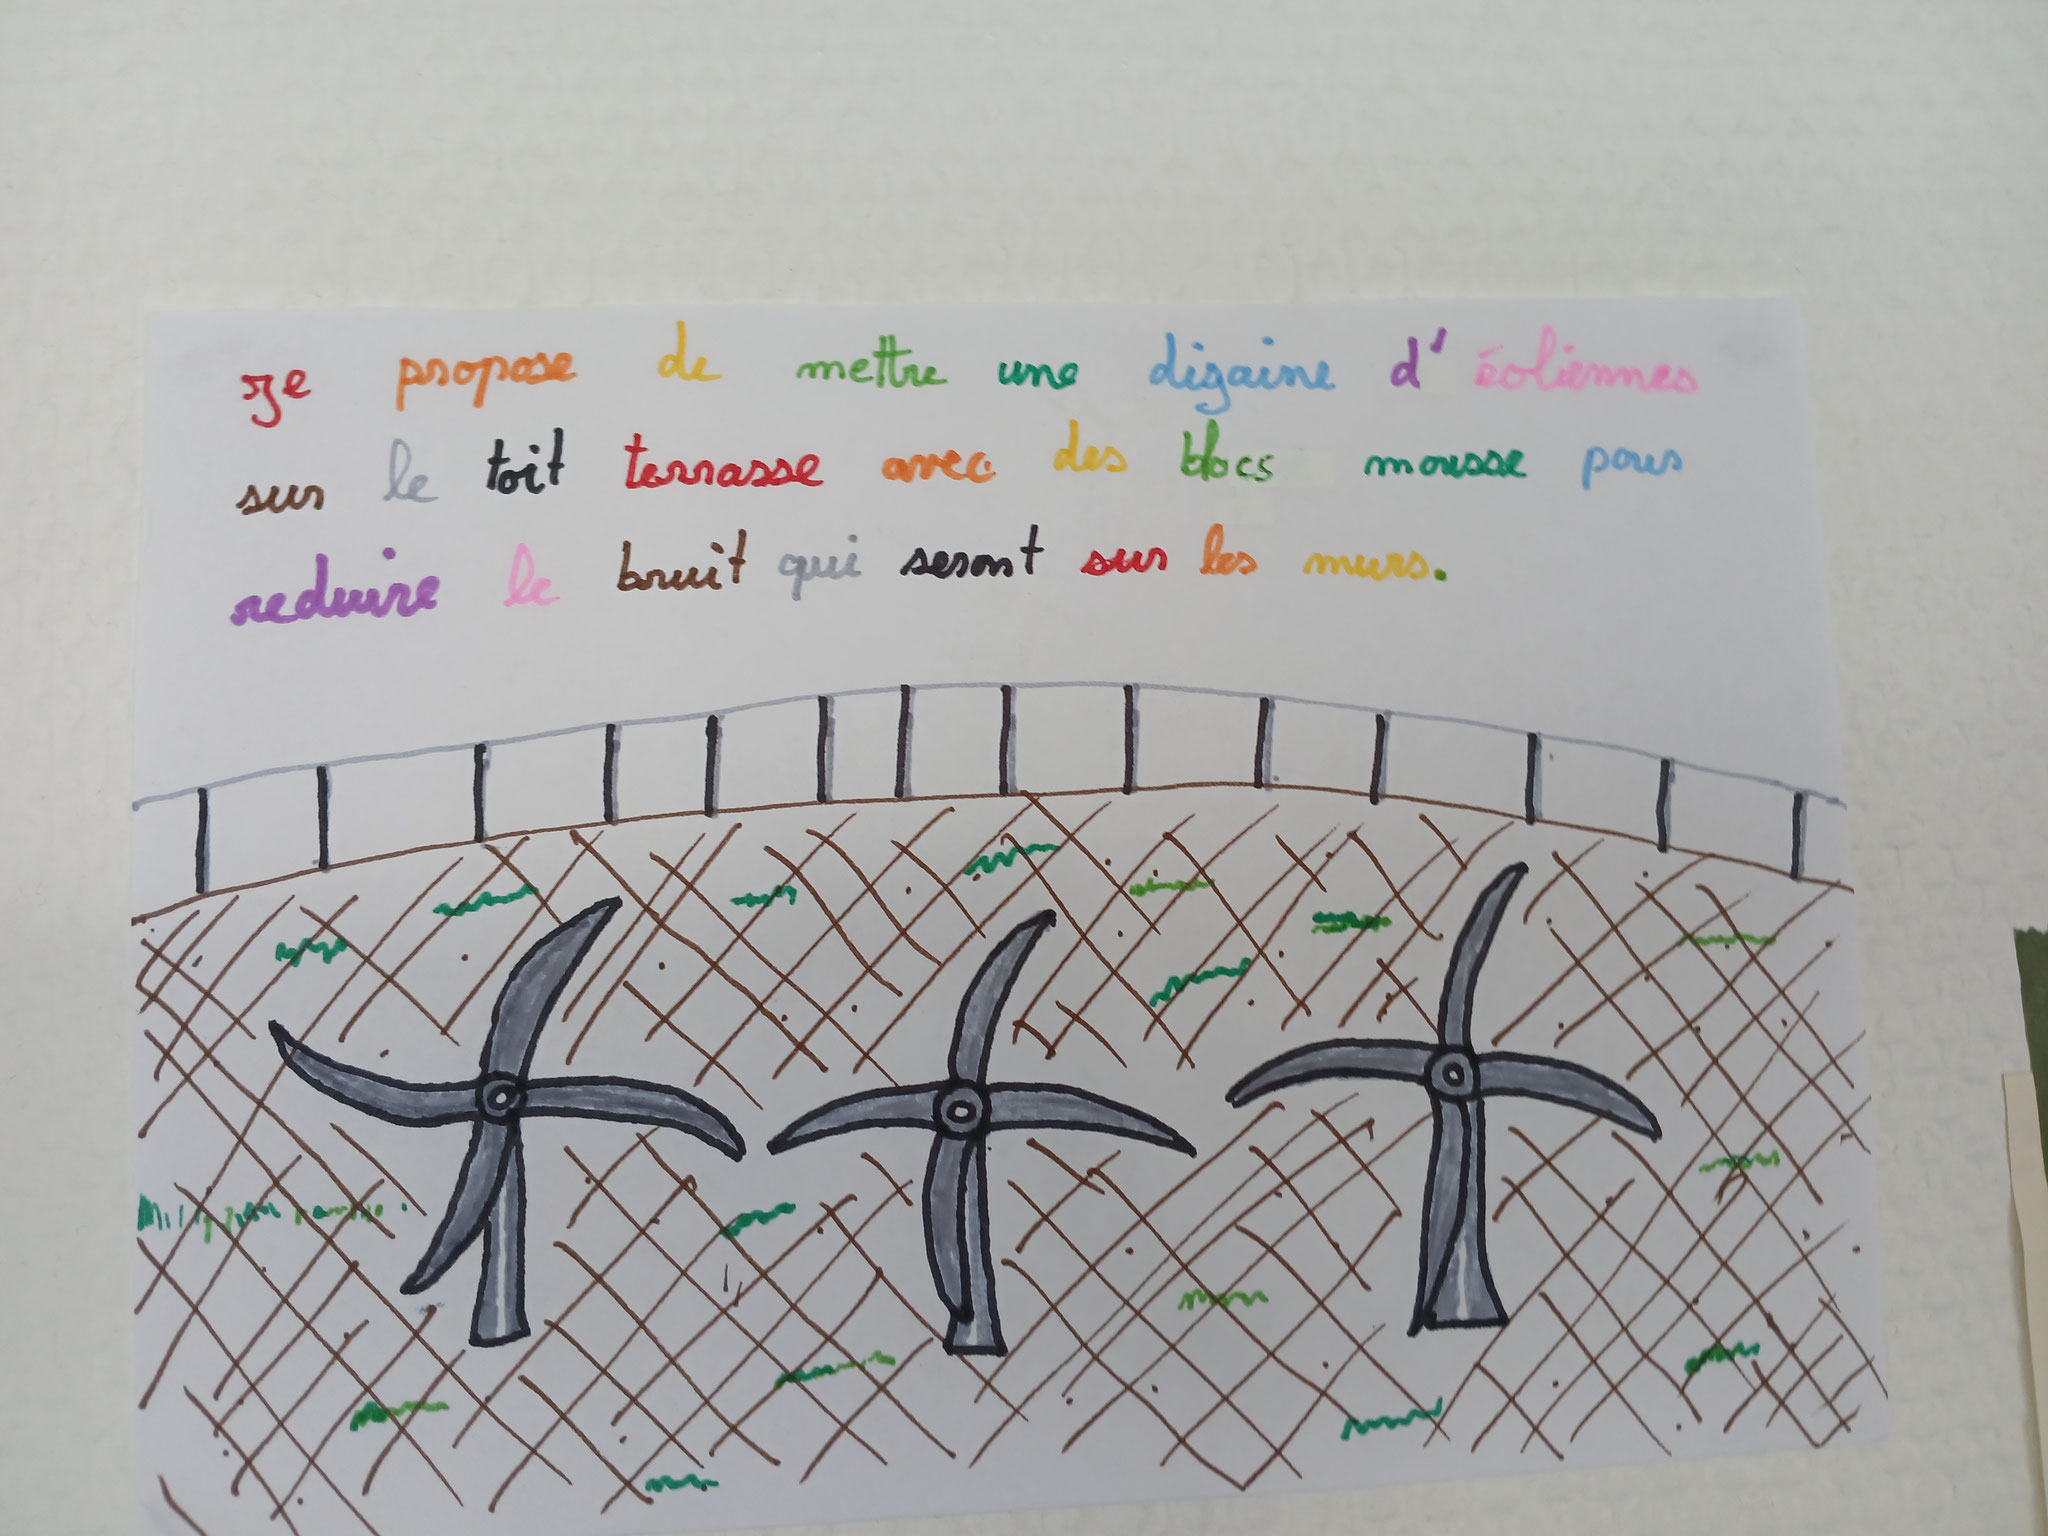 Je propose de mettre une dizaine d'éoliennes
sur le toit terrasse avec des blocs mousse pour
reduire le bruit qui seront sur les murs.